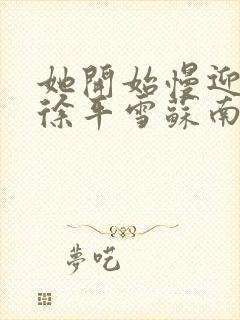 她開始慢迎
徐平雪蘇南
夢吃